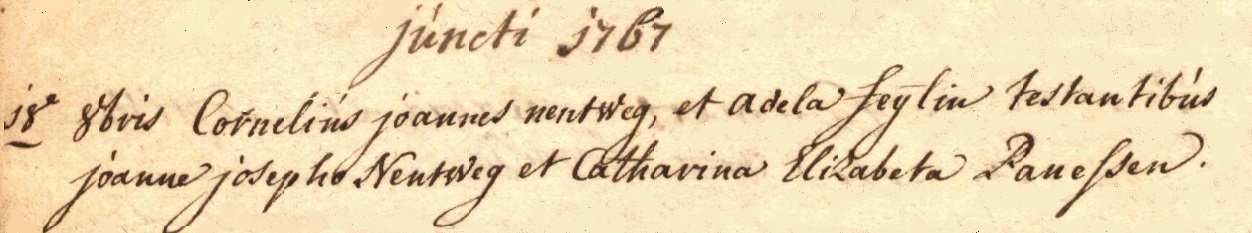 júncti 1767
18ª 8bris Cornelius joannes nentweg, et adela feylin testantibús
joanne josepho Nentweg et Catharina Elizabeta Panessen.